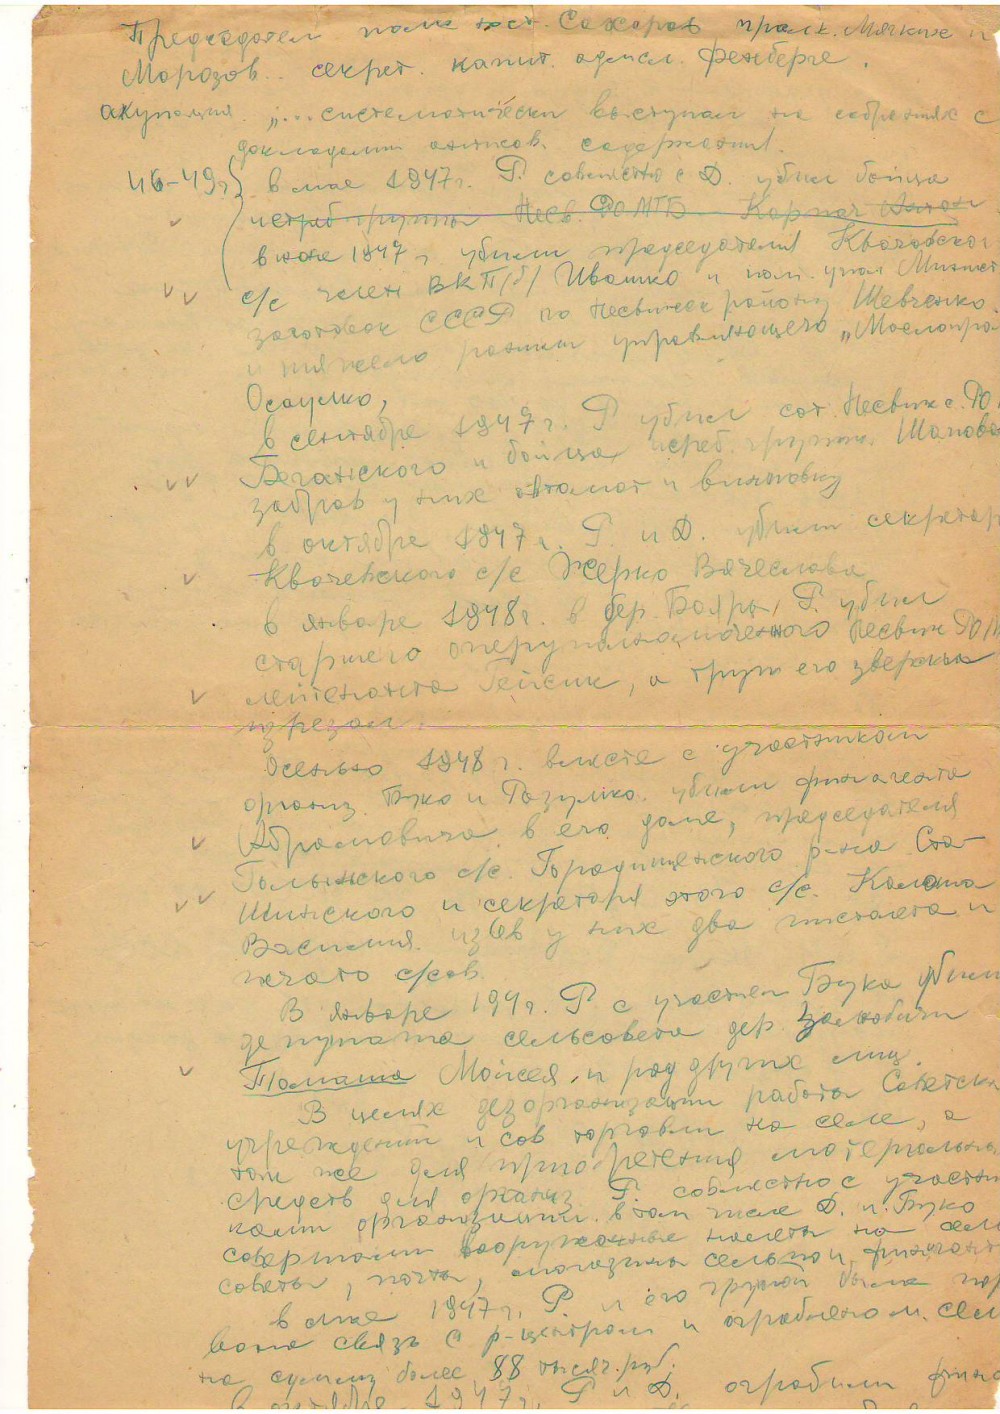 Председател полк юст. Сахаров прап. Мягких и
Морозов.. секрет. капит. адм.сл. Фенберге.
акупация. „... систематически выступал на собраниях с
докладами антисов. содержания.
46-49г} в мае 1947г. Р. совместно с Д. убил бойца
истреб группы Несв. РОМГБ Карпач Антон
в июне 1947 г. убили председателя Квачевског
с/с член ВКП/б/ Ивашко и упол. Минист
заготовок СССР по Несвижск району Шевченко.
и тяжело ранили управляющего „Маслопро
Осаулко,
в сентябре 1947г. Р убил сот. Несвижс. РОМ
Беганского и бойца истреб. группы Шапова
забрав у них автомат и винтовку
в октябре 1947г. Р. и Д. убили секретар
Квачевского с/с Жерко Вячеслава
в январе 1948г. в дер. Бояры, Р. убил
старшего оперуполномоченного Несвиж РОМ
лейтенанта Гейсик, а труп его зверски
изрезал.
Осенью 1948 г. вместе с участником
организ. Буко и Разумко. убили финагента
Абрамовича в его доме, председателя
Голынского с/с. Городищенского р-на Ста-
шинского и секретаря этого с/с. Калаша
Василия. изъяв у них два пистолета и
печать с/сов.
В январе 194г. Р с участием Бука убили
депутата сельсовета дер. Залюбичи
Томаша Моисея, и ряд других лиц.
В целях дезорганизации работы Советск
учреждений и сов торговли на селе, а
так же для приобретения материальн
средств для организ Р. совместно с участни
ками организации. в том числе Д. и Буко
совершали вооруженные налеты на сель
советы, почты, магазины сельпо и финагент
в мае 1947г. Р. и его группой была пор
вана связь с р-центром и ограблено м. сель
на сумму более 88 тысяч.руб.
в октябре 1947г. Р и Д. ограбили фина